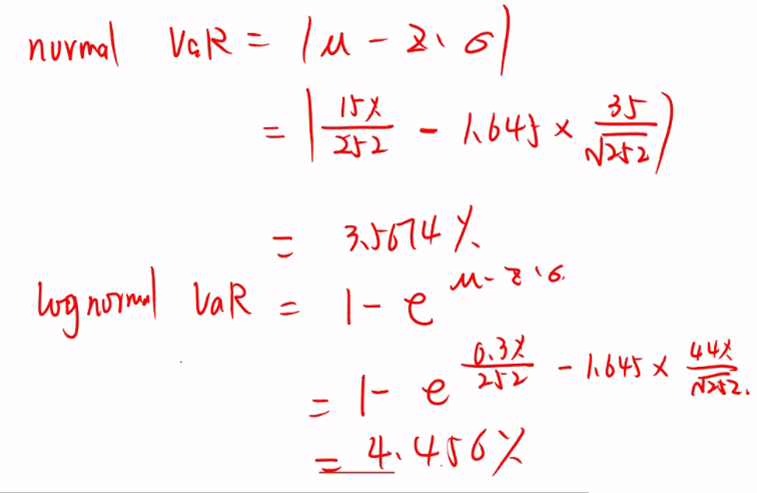 normal VaR = |μ - z·σ|
= |15%/252 - 1.645 × 35/√252|
= 3.5674%
lognormal VaR = 1 - e^(μ - z·σ)
= 1 - e^(0.3%/252 - 1.645 × 44%/√252)
= 4.456%